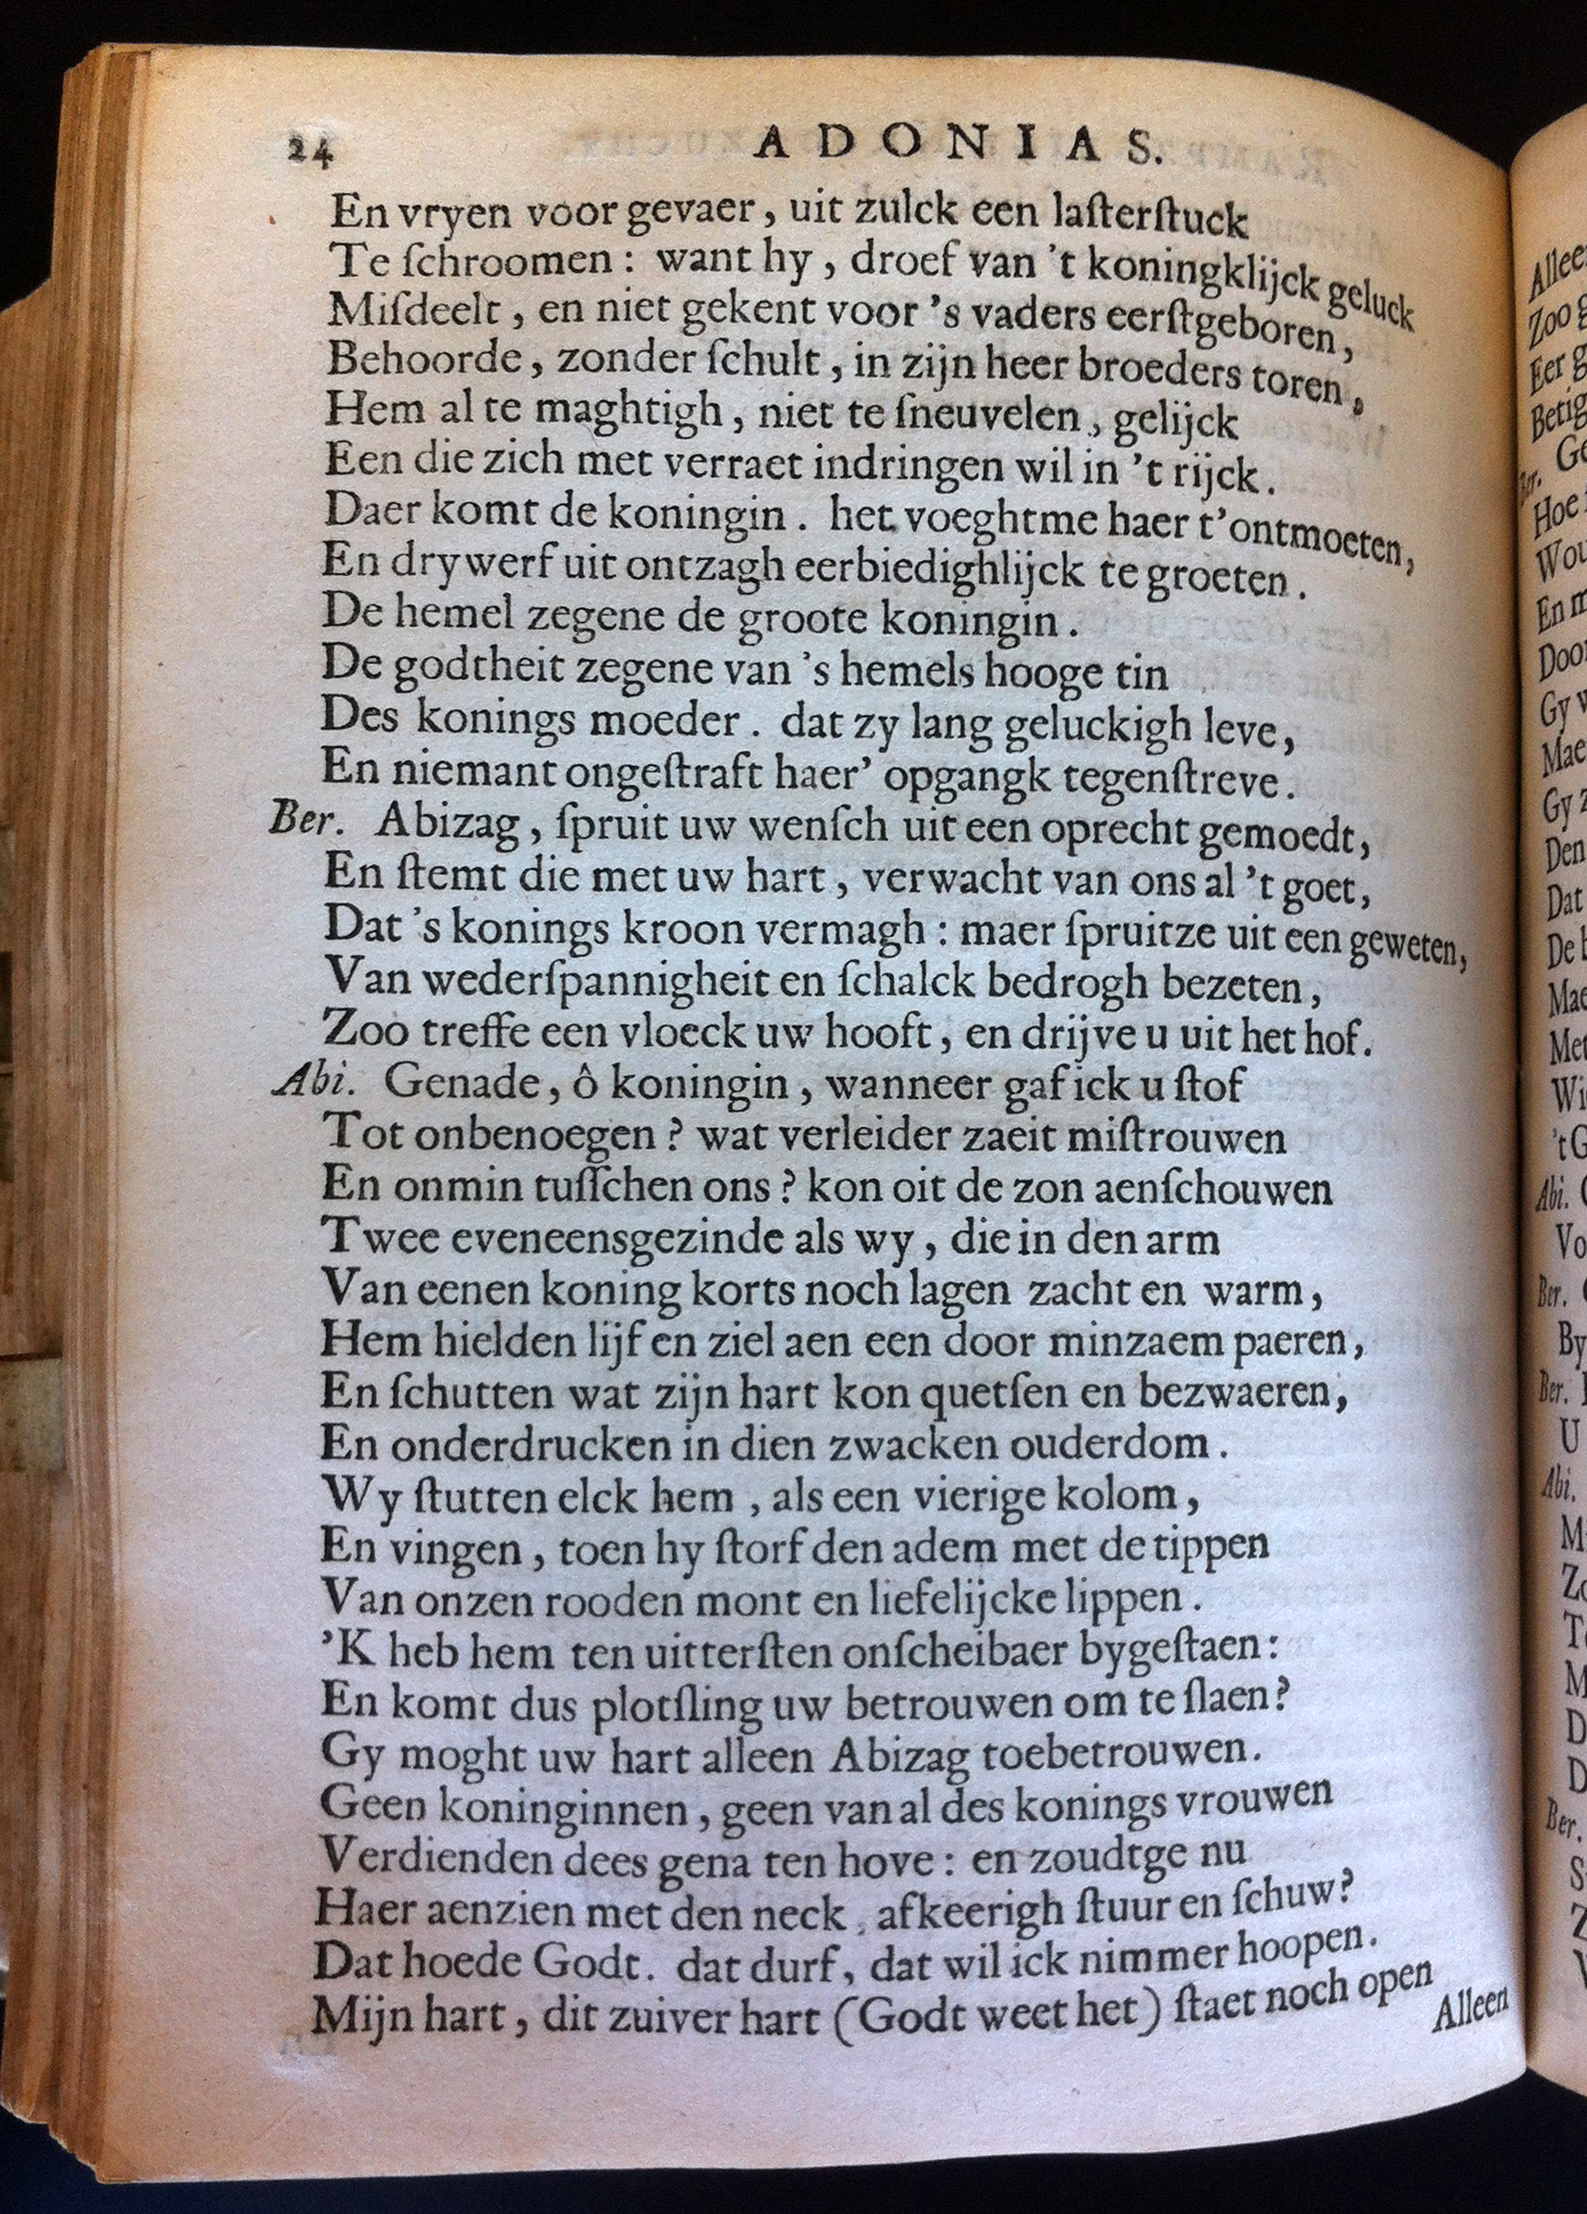 24 ADONIAS.
En vryen voor gevaer, uit zulck een laſterſtuck
Te ſchroomen: want hy, droef van 't koningklijck geluck
Miſdeelt, en niet gekent voor 's vaders eerſtgeboren,
Behoorde, zonder ſchult, in zijn heer broeders toren,
Hem al te maghtigh, niet te ſneuvelen, gelijck
Een die zich met verraet indringen wil in 't rijck.
Daer komt de koningin. het voeghtme haer t'ontmoeten,
En drywerf uit ontzagh eerbiedighlijck te groeten.
De hemel zegene de groote koningin.
De godtheit zegene van 's hemels hooge tin
Des konings moeder. dat zy lang geluckigh leve,
En niemant ongeſtraft haer' opgangk tegenſtreve.
Ber. Abizag, ſpruit uw wenſch uit een oprecht gemoedt,
En ſtemt die met uw hart, verwacht van ons al 't goet,
Dat 's konings kroon vermagh: maer ſpruitze uit een geweten,
Van wederſpannigheit en ſchalck bedrogh bezeten,
Zoo treffe een vloeck uw hooft, en drijve u uit het hof.
Abi. Genade, ô koningin, wanneer gaf ick u ſtof
Tot onbenoegen? wat verleider zaeit miſtrouwen
En onmin tuſſchen ons? kon oit de zon aenſchouwen
Twee eveneensgezinde als wy, die in den arm
Van eenen koning korts noch lagen zacht en warm,
Hem hielden lijf en ziel aen een door minzaem paeren,
En ſchutten wat zijn hart kon quetſen en bezwaeren,
En onderdrucken in dien zwacken ouderdom.
Wy ſtutten elck hem, als een vierige kolom,
En vingen, toen hy ſtorf den adem met de tippen
Van onzen rooden mont en liefelijcke lippen.
'K heb hem ten uitterſten onſcheibaer bygeſtaen:
En komt dus plotſling uw betrouwen om te ſlaen?
Gy moght uw hart alleen Abizag toebetrouwen.
Geen koninginnen, geen van al des konings vrouwen
Verdienden dees gena ten hove: en zoudtge nu
Haer aenzien met den neck, afkeerigh ſtuur en ſchuw?
Dat hoede Godt. dat durf, dat wil ick nimmer hoopen.
Mijn hart, dit zuiver hart (Godt weet het) ſtaet noch open
Alleen
Zoo g
Eer g
Betig
Ge
Hoe
Wou
En m
Door
Gy v
Mae
Gy z
Den
Dat
De b
Mae
Met
Wi
't G
Abi.
Vo
Ber.
By
Ber.
U
Abi.
M
Zo
T
M
D
D
Ber.
S
Z